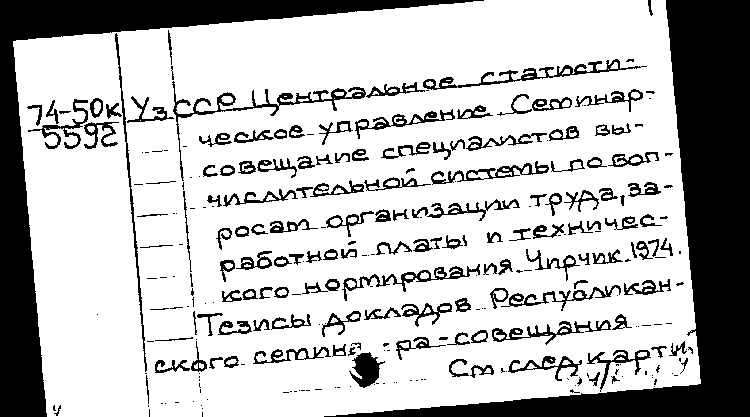 74-50к
5592
УзССР Центральное статисти-
ческое управление. Семинар-
совещание специалистов вы-
числительной системы по воп-
росам организации труда, за-
работной платы и техничес-
кого нормирования. Чирчик. 1974.
Тезисы докладов Республикан-
ского семина-ра-совещания
См. след. карт